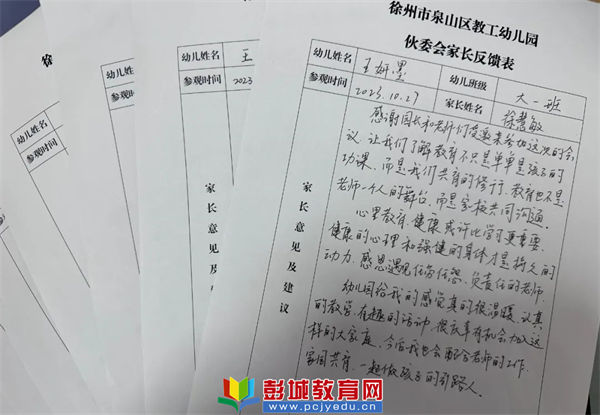 徐州市泉山区教工幼儿园
伙委会家长反馈表
幼儿姓名 王妍墨 幼儿班级 大一班
参观时间 2023.10.27 家长姓名 徐慧敏
感谢园长和老师们邀来参加这次的会
议,让我们了解教育不只是单单是孩子的
功课,而是我们共育的修行,教育也不是
老师一个人的舞台,而是家校共同沟通。
心里教育,健康或许比学习更重要,
健康的心理和强健的身体才是持久的
动力,感恩遇见任劳任怨,负责任的老师.
幼儿园给我的感觉真的很温暖,认真
的教学,有趣的活动,很庆幸有机会加入这
样的大家庭,今后我也会配合老师的工作,
家园共育,一起做孩子的引路人.
家长意见及建议
幼儿姓名 王
参观时间 2023
家长意见及
幼儿姓名
参观时间
徐
彭城教育网
www.pcjyedu.cn